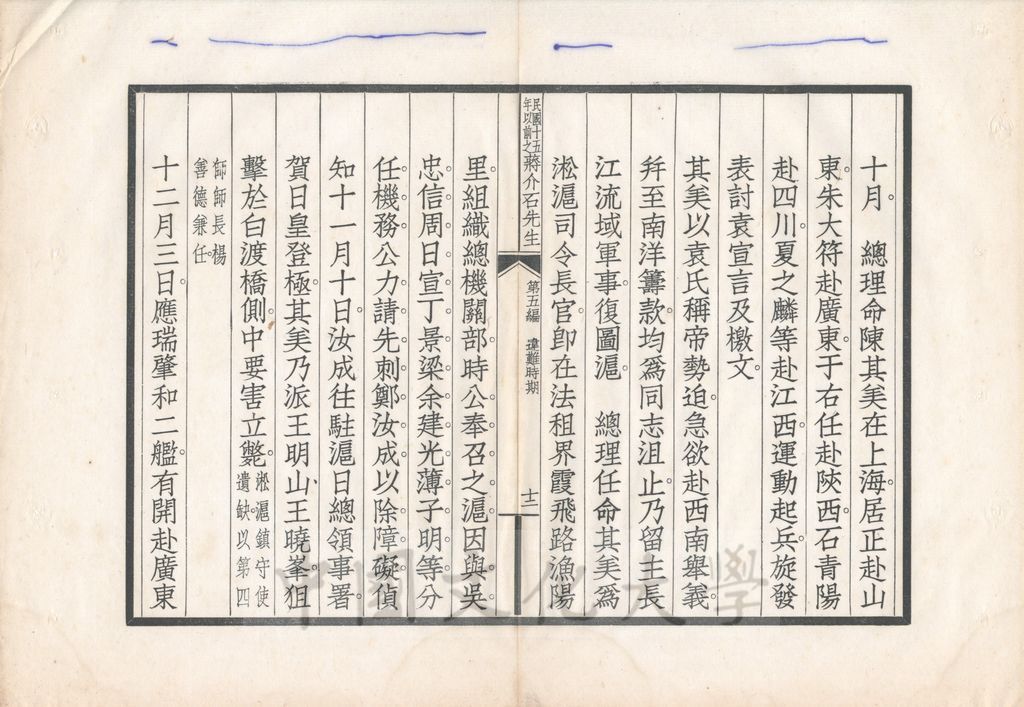 十月。　總理命陳其美在上海。居正赴山
東。朱大符赴廣東。于右任赴陝西。石青陽
赴四川。夏之麟等赴江西。運動起兵。旋發
表討袁宣言及檄文。
其美以袁氏稱帝勢迫。急欲赴西南舉義。
幷至南洋籌款。均爲同志沮止。乃留主長
江流域軍事。復圖滬。　總理任命其美爲
淞滬司令長官。卽在法租界霞飛路漁陽
民國十五年以前之蔣介石先生
第五編　違難時期
十二
里。組織總機關部。時公奉召之滬。因與吳
忠信。周日宣。丁景梁。余建光。薄子明等。分
任機務。公力請先刺鄭汝成。以除障礙。偵
知十一月十日。汝成往駐滬日總領事署。
賀日皇登極。其美乃派王明山。王曉峯。狙
擊於白渡橋側。中要害立斃。淞滬鎮守使遺缺以第四
師師長楊善德兼任。
十二月三日。應瑞肇和二艦。有開赴廣東
中國文化大學